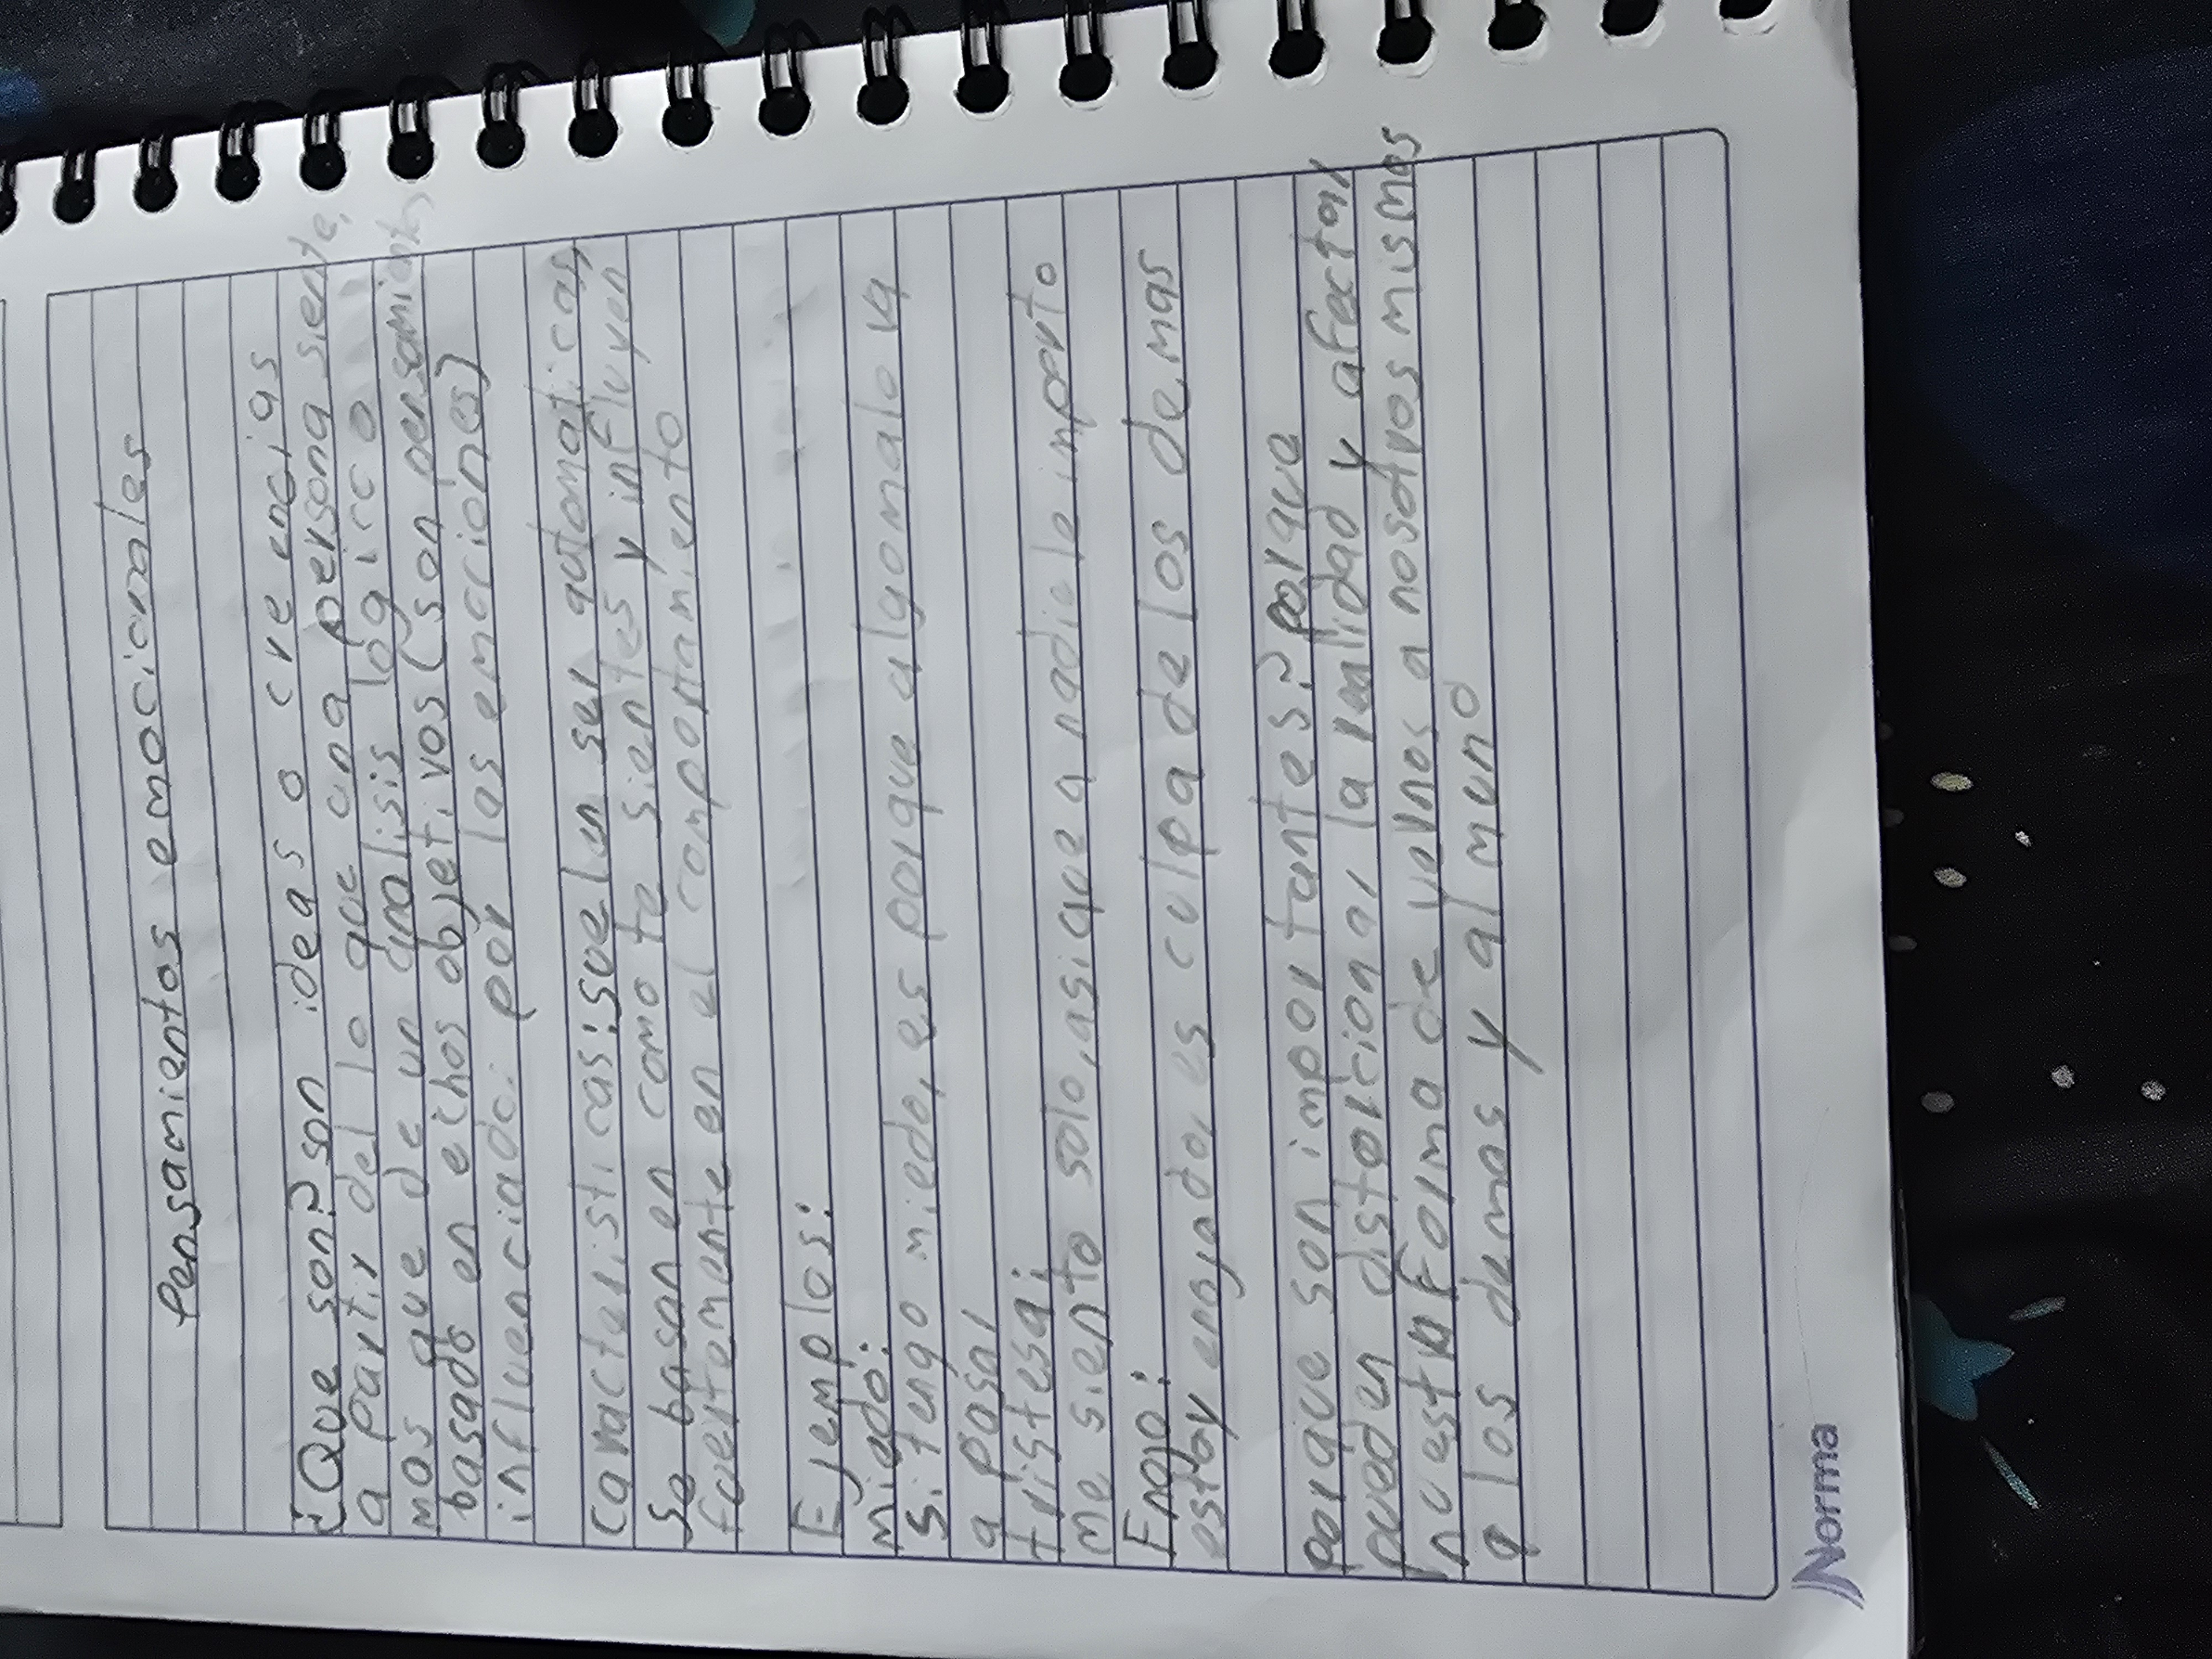 Pensamientos emocionales
¿Que son? son ideas o creencias
a partir del lo que una persona siente,
mas que de un analisis lógico o
basado en echos objetivos (son pensamientos
influenciado por las emociones)
caracteristicas: suelen ser automaticas,
se basan en como te sientes y influyen
fuertemente en el comportamiento
Ejemplos:
miedo:
si tengo miedo, es porque algo malo va
a pasar
tristesa:
me siento solo, asi que a nadie le importo
Enojo:
estoy enojado, es culpa de los demas
porque son importantes? porque
pueden distorcionar la realidad y afectar
nuestra forma de vernos a nosotros mismos
a los demas y al mund
Norma